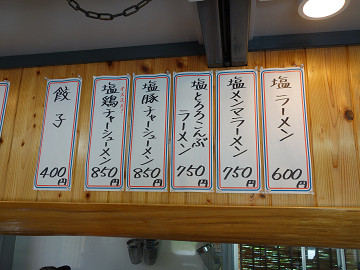 塩ラーメン
600円
塩メンマラーメン
750円
塩とろろこんぶ
ラーメン
750円
塩豚チャーシューメン
850円
塩鶏チャーシューメン
850円
餃子
400円